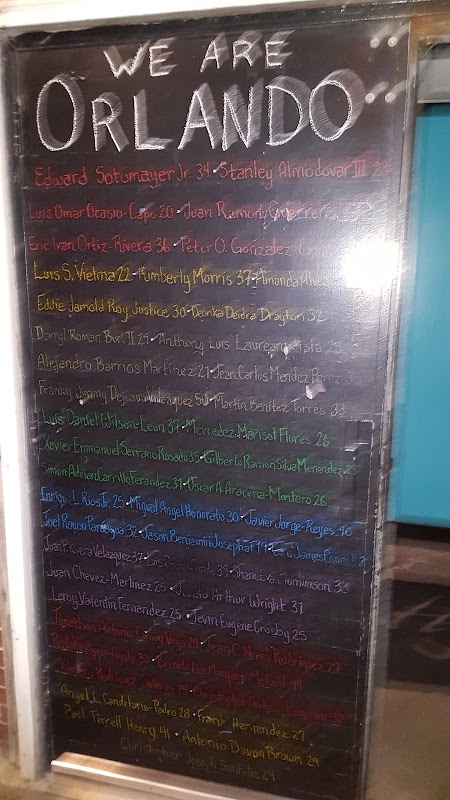 WE ARE
ORLANDO
Edward Sotomayer Jr. 34 • Stanley Almodovar III 23
Luis Omar Ocasio-Capo 20 • Juan Ramon Guerrero
Eric Ivan Ortiz-Rivera 36 • Peter O. Gonzalez-
Luis S. Vielma 22 • Kimberly Morris 37 • Amanda
Eddie Jamold Roy Justice 30 • Deonka Deidra Drayton 32
Darryl Roman Burt II 29 • Anthony Luis Laureano 25
Alejandro Barrios Martinez 21 • Jean Carlos Mendez Perez
Franky Jimmy Dejesus Velazquez 50 • Martin Benitez Torres 33
Luis Daniel Wilson-Leon 37 • Mercedez Marisol Flores 26
Xavier Emmanuel Serrano Rosado 35 • Gilberto Ramon Silva Menendez 25
Simon Adrian Carrillo Ferandez 31 • Oscar A. Aracena-Montero 26
Enrique L. Rios Jr. 25 • Miguel Angel Honorato 30 • Javier Jorge-Reyes 40
Joel Rayon Paniagua 32 • Jason Benjamin Josaphat 19 • James
Juan P. Rivera Velazquez 37 • Luis Conde 39 • Shane Tomlinson 33
Juan Chavez-Martinez 25 • Arthur Wright 31
Leroy Valentin Fernandez 25 • Tevin Eugene Crosby 25
Jonathan Antonio Vega 24 • Jean C. Nives Rodriguez 27
Brenda Lee Marquez McCool 49
Rodriguez 24 • Christopher 32
Angel L. Candelario-Padro 28 • Frank Hernandez 27
Paul Terrell Henry 41 • Antonio Davon Brown 29
Christopher Joseph Sanfeliz 24